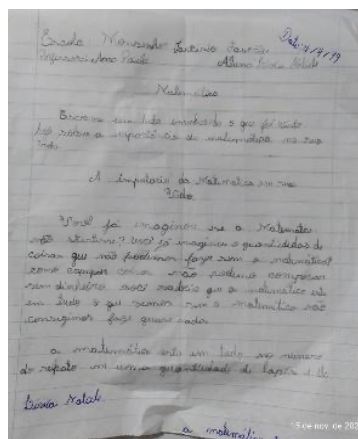 Escola: Monsenhor
Professora Ana Paula Aluna
Matemática
Escreva um texto envolvendo o que foi
sobre a importância da matemática na sua
vida
A importância da Matemática em sua
Vida
Você já imaginou se a Matemática
não existisse? Você já imaginou a quantidades de
coisas que não podemos fazer sem a matemática?
como comprar coisas não podemos comprar
sem dinheiro você sabia que a matemática está
em tudo o que somos sem a matemática não
conseguimos fazer quase nada.
a matemática está em tudo no número
do sapato em uma quantidade de lapis
a matemática
15 de nov. de